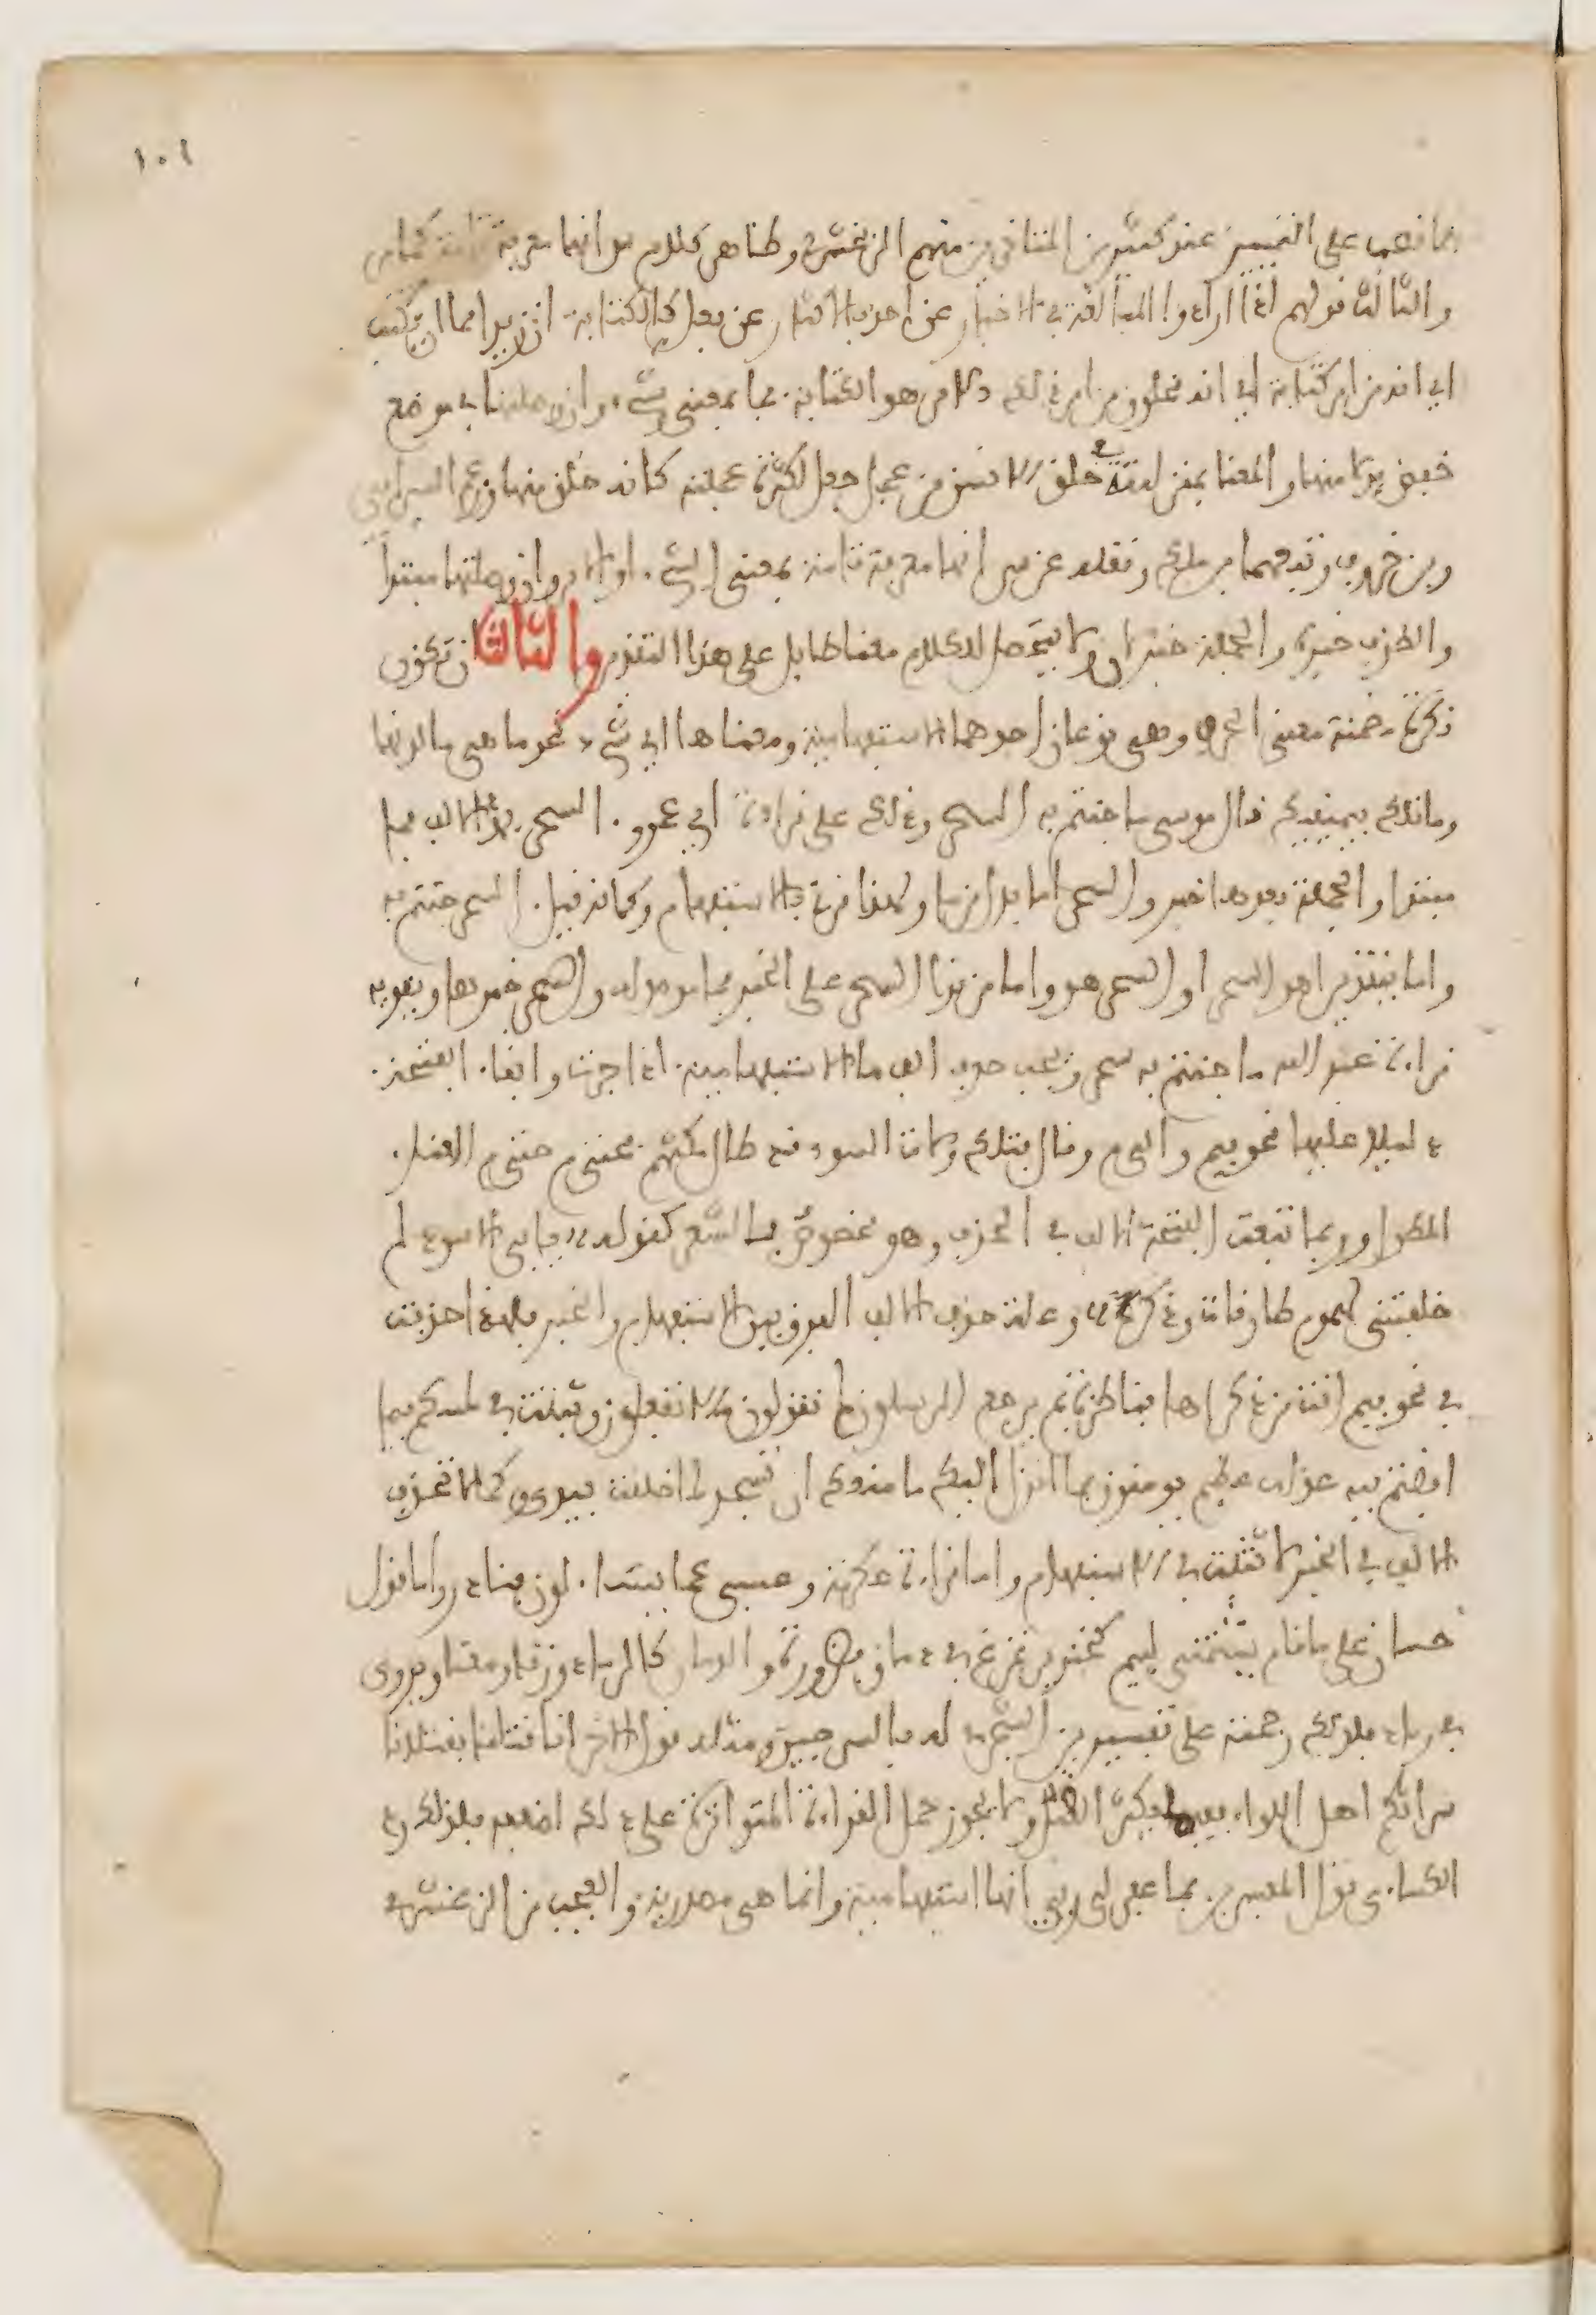 ١٠١
فما نصب على التمييز عند كثير من المتاخرين منهم الزمخشري وظاهر كلام س انها معرفة تامة كما مر
والثالث قولهم اذا ارادوا المبالغة في الاخبار عن احد بالاكثار عن فعل كالكتابة ان زيدا مما ان يكتب
اي انه من امر كتابة اي انه مخلوق من امر ذلك الامر هو الكتابة فما بمعنى شيء وان وصلتها في موضع
خفض بدلا منها والمعنا بمنزلته في خلق الانسن من عجل جعل لكثرة عجلته كانه خلق منها وزعم السيرافي
وبن خروف وتبعهما بن ملك ونقله عن س انها معرفة تامة بمعنى الشيء او الامر وان وصلتها مبتدا
والظرف خبره والجملة خبر لان ولا يتحصل للكلام معنا طايل على هذا التقدير والثالث ان تكون
نكرة مضمنة معنى الحرف وهي نوعان احدهما الاستفهامية ومعناها اي شيء نحو ما هي ما لونها
وما تلك بيمينك قال موسى ما جئتم به السحر وذلك على قراءة ابي عمرو السحر بمد الالف فما
مبتدا والجملة بعدها خبر والسحر اما بدل من ما ولهذا قرن بالاستفهام وكانه قيل السحر جئتم به
واما بتقدير اهو السحر او السحر هو واما من قرا السحر على الخبر فما موصوله والسحر خبرها ويقويه
قراءة عبد الله ما جئتم به سحر ويجب حذف الف ما الاستفهامية اذا جرت وابقا الفتحة
دليلا عليها نحو بيم والى م وقال فتلك ولات السوء قد طال مكثهم فحتى م حتى م العنا
المطول وربما تبعت الفتحة الالف في الحذف وهو مخصوص بالشعر كقوله يابا الاسود لم
خلفتني لهموم طارقات وذكر وعلة حذف الالف الفرق بين الاستفهام والخبر فلهذا حذفت
في نحو فيم انت من ذكراها فناظرة بم يرجع المرسلون لم تقولون ما لا تفعلون وثبتت في لمسكم فيما
افضتم فيه عذاب عظيم يومنون بما انزل اليك ما منعك ان تسجد لما خلقت بيدي وكما لا تحذف
الالف في الخبر لا تثبت في الاستفهام واما قراءة عكرمة وعيسى عما يتسا لون فنادر واما قول
حسان على ما قام يشتمني ليم كخنزير تمرغ في دمان فضرورة والدمان كالرماد وزنا ومعنا ويروى
في رماد فلذلك رجحته على تفسير بن الشجري له بالسرجين ومثله قول الاخر انا قتلنا بقتلانا
سراتكم اهل اللواء ففيما يكثر القتل ولا يجوز حمل القراءة المتواترة على ذلك لضعفه فلذلك رد
الكساي قول المفسرين بما غفر لي ربي انها استفهامية وانما هي مصدرية والعجب من الزمخشري